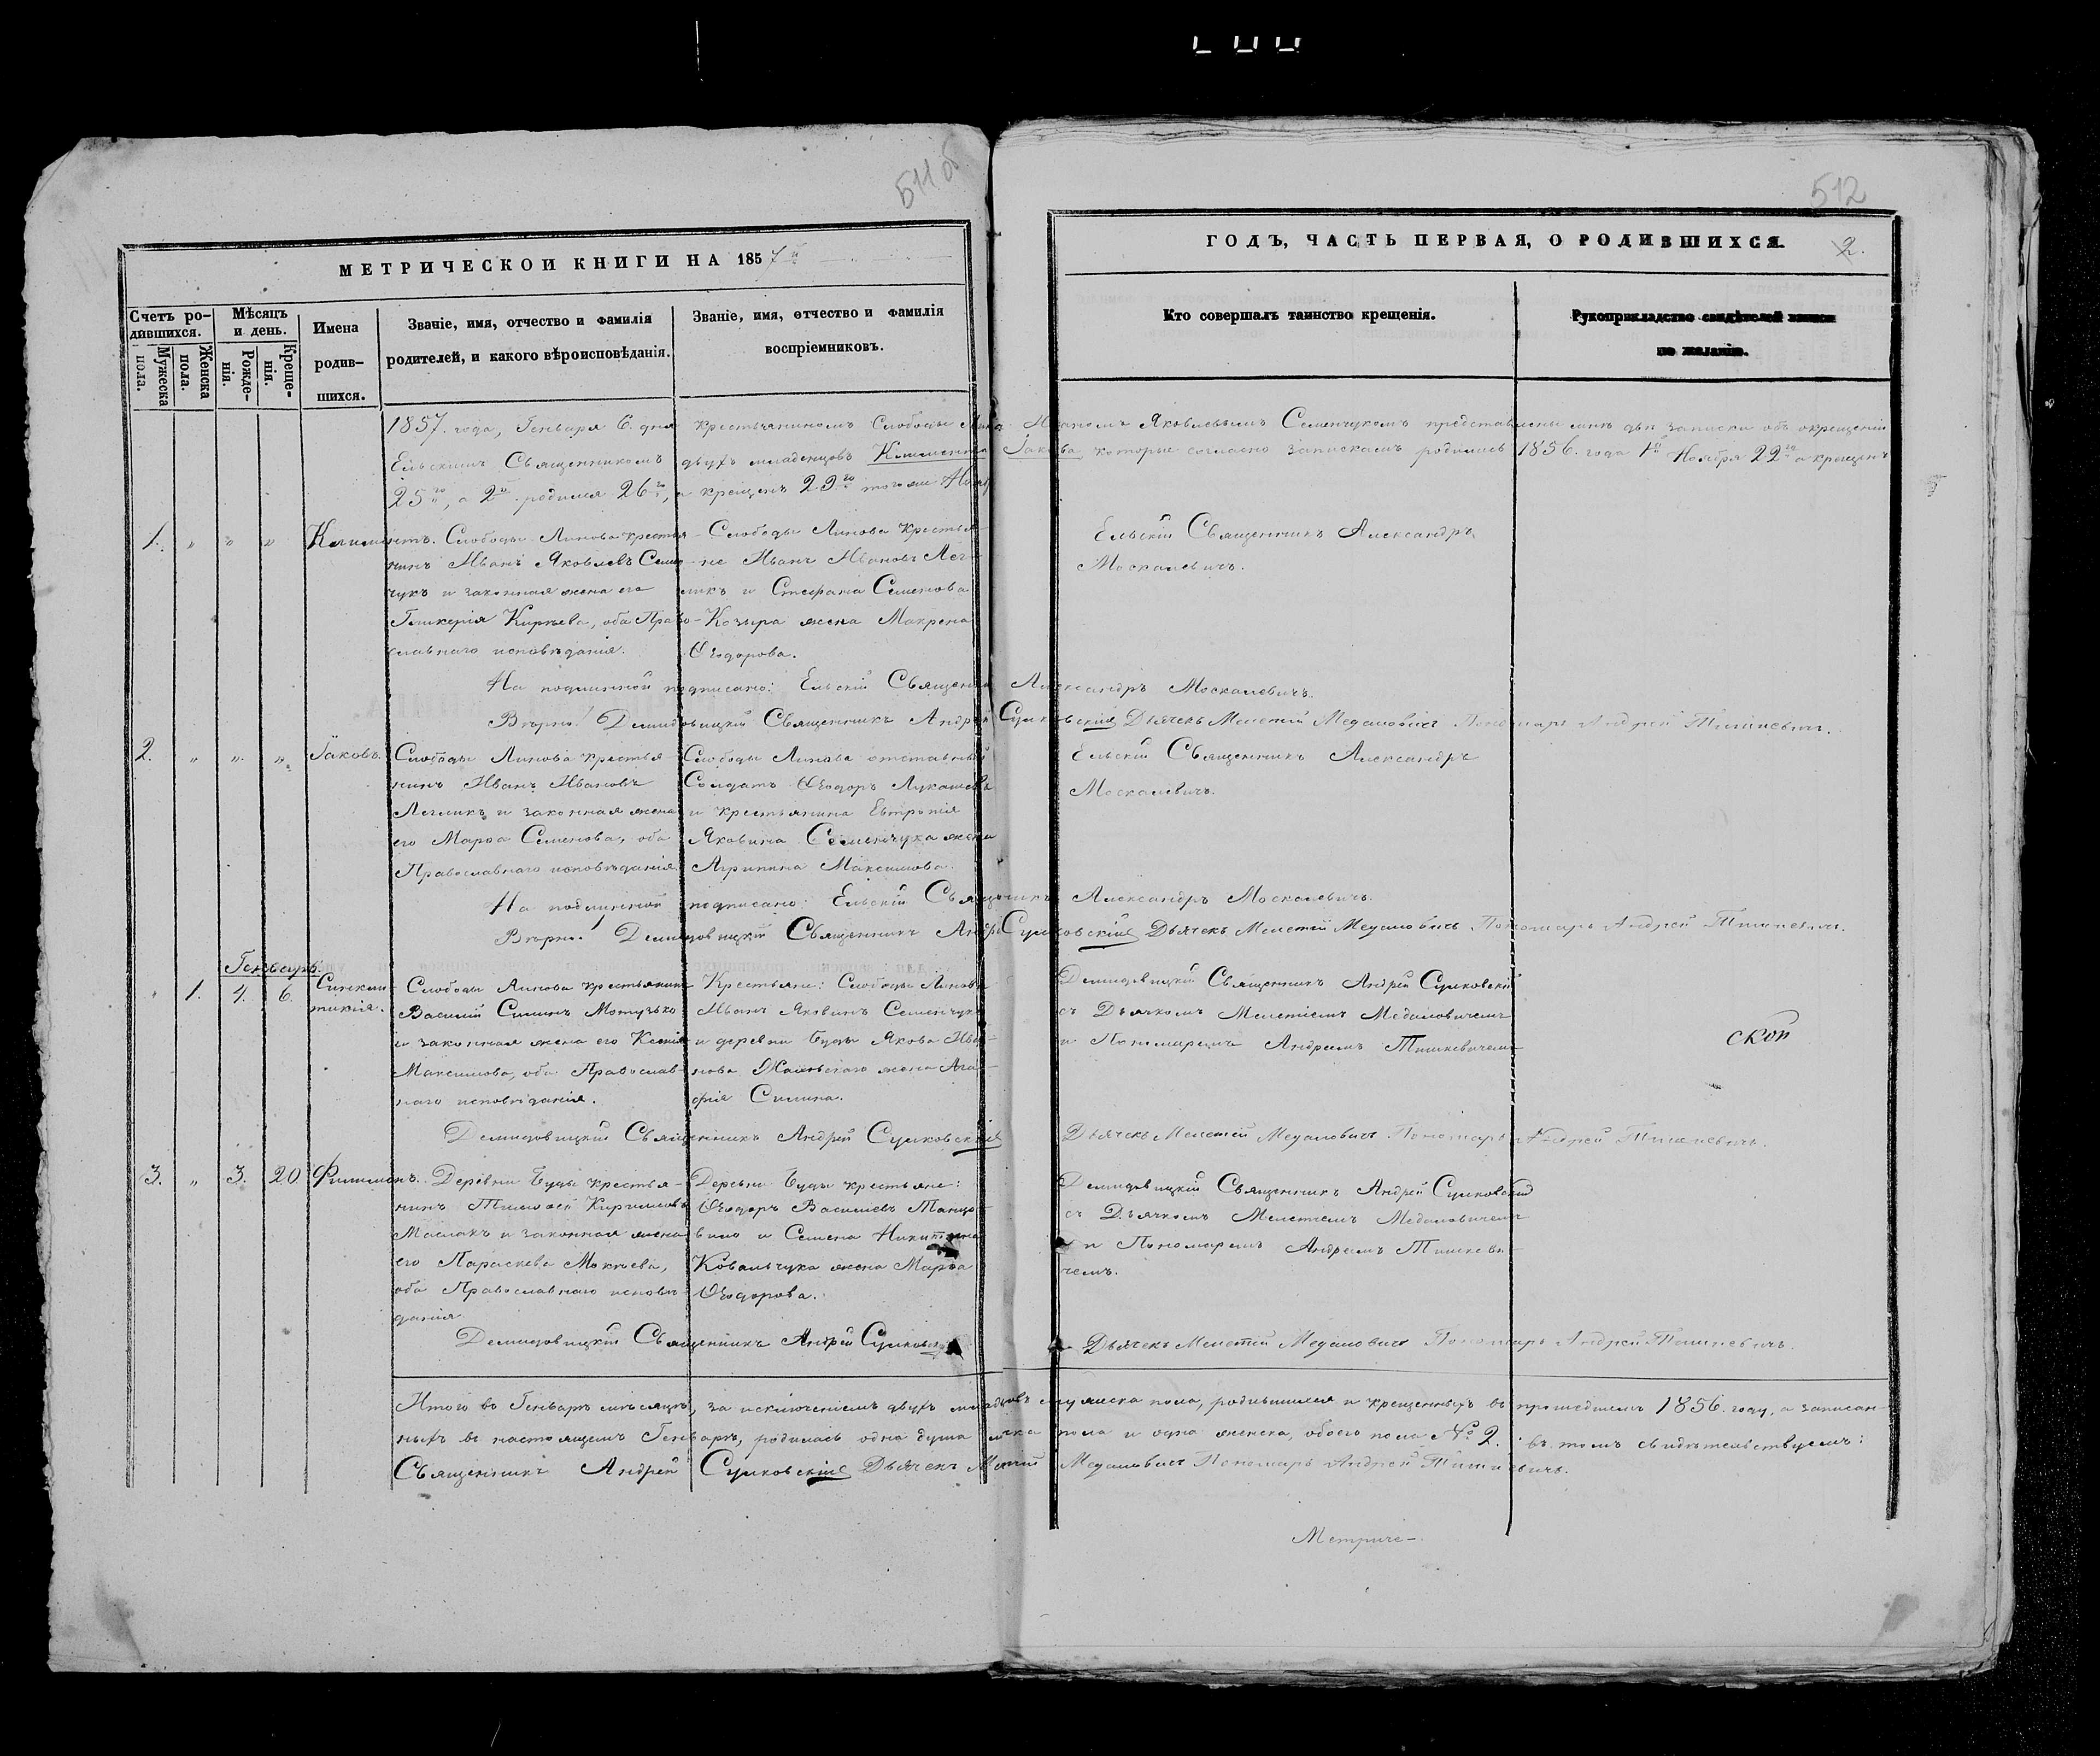 511 об
512
МЕТРИЧЕСКОЙ КНИГИ НА 1857й
ГОДЪ, ЧАСТЬ ПЕРВАЯ, О РОДИВШИХСЯ. 2.
Счетъ родившихся.
Мужеска пола.
Женска пола.
Мѣсяцъ и день.
Рожденія.
Крещенія.
Имена родившихся.
Званіе, имя, отчество и фамилія
родителей, и какого вѣроисповѣданія.
Званіе, имя, отчество и фамилія
воспріемниковъ.
Кто совершалъ таинство крещенія.
Рукоприкладство свидѣтелей записи
по желанію.
1857. года, Генваря 6. дня крестьяниномъ Слободы Иваномъ Яковлевымъ Семенчукомъ представлены мнѣ двѣ записки объ окрещеніи
Ельскимъ Священникомъ двухъ младенцовъ Климента Іакова, которые согласно запискамъ родились 1856. года 1й Ноября 22го а крещенъ
25го, а 2й родился 26го, а крещенъ 29го того же
1. " " " Климентъ.
Слободы Линова крестья-
нинъ Иванъ Яковлевъ Семен-
чукъ и законная жена его
Гликерія Кирѣева, оба Право-
славнаго исповѣданія.
Слободы Линова Крестья-
не Иванъ Ивановъ Лег-
микъ и Стефана Семенова
Козыра жена Макрена
Ѳеодорова.
Ельскій Священникъ Александръ
Москалевичъ.
На подлинной подписано: Ельскій Священникъ Александръ Москалевичъ.
Вѣрно: Демидовицкій Священникъ Андрей Сулковскій Дьячекъ Мелетій Медаловичъ Пономарь Андрей Тишкевичъ.
2. " " " Іаковъ.
Слободы Линова крестья
нинъ Иванъ Ивановъ
Легмикъ и законная жена
его Марѳа Семенова, оба
Православнаго исповѣданія.
Слободы Линова отставный
Солдатъ Ѳеодоръ Лукашевъ
и крестьянина Евтропія
Яковина Семенчука жена
Агрипина Максимова.
Ельскій Священникъ Александръ
Москалевичъ.
На подлинной подписано: Ельскій Священникъ Александръ Москалевичъ.
Вѣрно: Демидовицкій Священникъ Андрей Сулковскій Дьячекъ Мелетій Медаловичъ Пономарь Андрей Тишкевичъ.
Генварь.
" 1. 4. 6. Синкли-
тикія.
Слободы Линова крестьянинъ
Василій Силинъ Мотузько
и законная жена его Ксенія
Максимова, оба Православ-
наго исповѣданія.
Крестьяне: Слободы Линова
Иванъ Яковинъ Семенчукъ
и деревни Буды Якова Ива-
нова жена Ага-
фія Силина.
Демидовицкій Священникъ Андрей Сулковскій
съ Дьячкомъ Мелетіемъ Медаловичемъ
и Пономаремъ Андреемъ Тишкевичемъ
скоп
Демидовицкій Священникъ Андрей Сулковскій Дьячекъ Мелетій Медаловичъ Пономарь Андрей Тишкевичъ.
3. " 3. 20. Филимонъ.
Деревни Буды крестья-
нинъ Тимоѳей Кириловъ
Маслакъ и законная жена
его Параскева Мокѣева,
оба Православнаго исповѣ-
данія
Деревни Буды крестьяне:
Ѳеодоръ Василіевъ
и Семена Никитина
Ковальчука жена Марѳа
Ѳеодорова.
Демидовицкій Священникъ Андрей Сулковскій
съ Дьячкомъ Мелетіемъ Медаловичемъ
и Пономаремъ Андреемъ Тишкеви-
чемъ.
Демидовицкій Священникъ Андрей Сулковскій Дьячекъ Мелетій Медаловичъ Пономарь Андрей Тишкевичъ.
Итого въ Генварѣ мѣсяцѣ, за исключеніемъ двухъ младенцовъ мужеска пола, родившихся и крещенныхъ въ прошедшемъ 1856. году, а записан-
ныхъ въ настоящемъ Генварѣ, родилась одна душа мужеска пола и одна женска, обоего пола № 2. въ томъ свидѣтельствуемъ:
Священникъ Андрей Сулковскій Дьячекъ Мелетій Медаловичъ Пономарь Андрей Тишкевичъ.
Метриче-